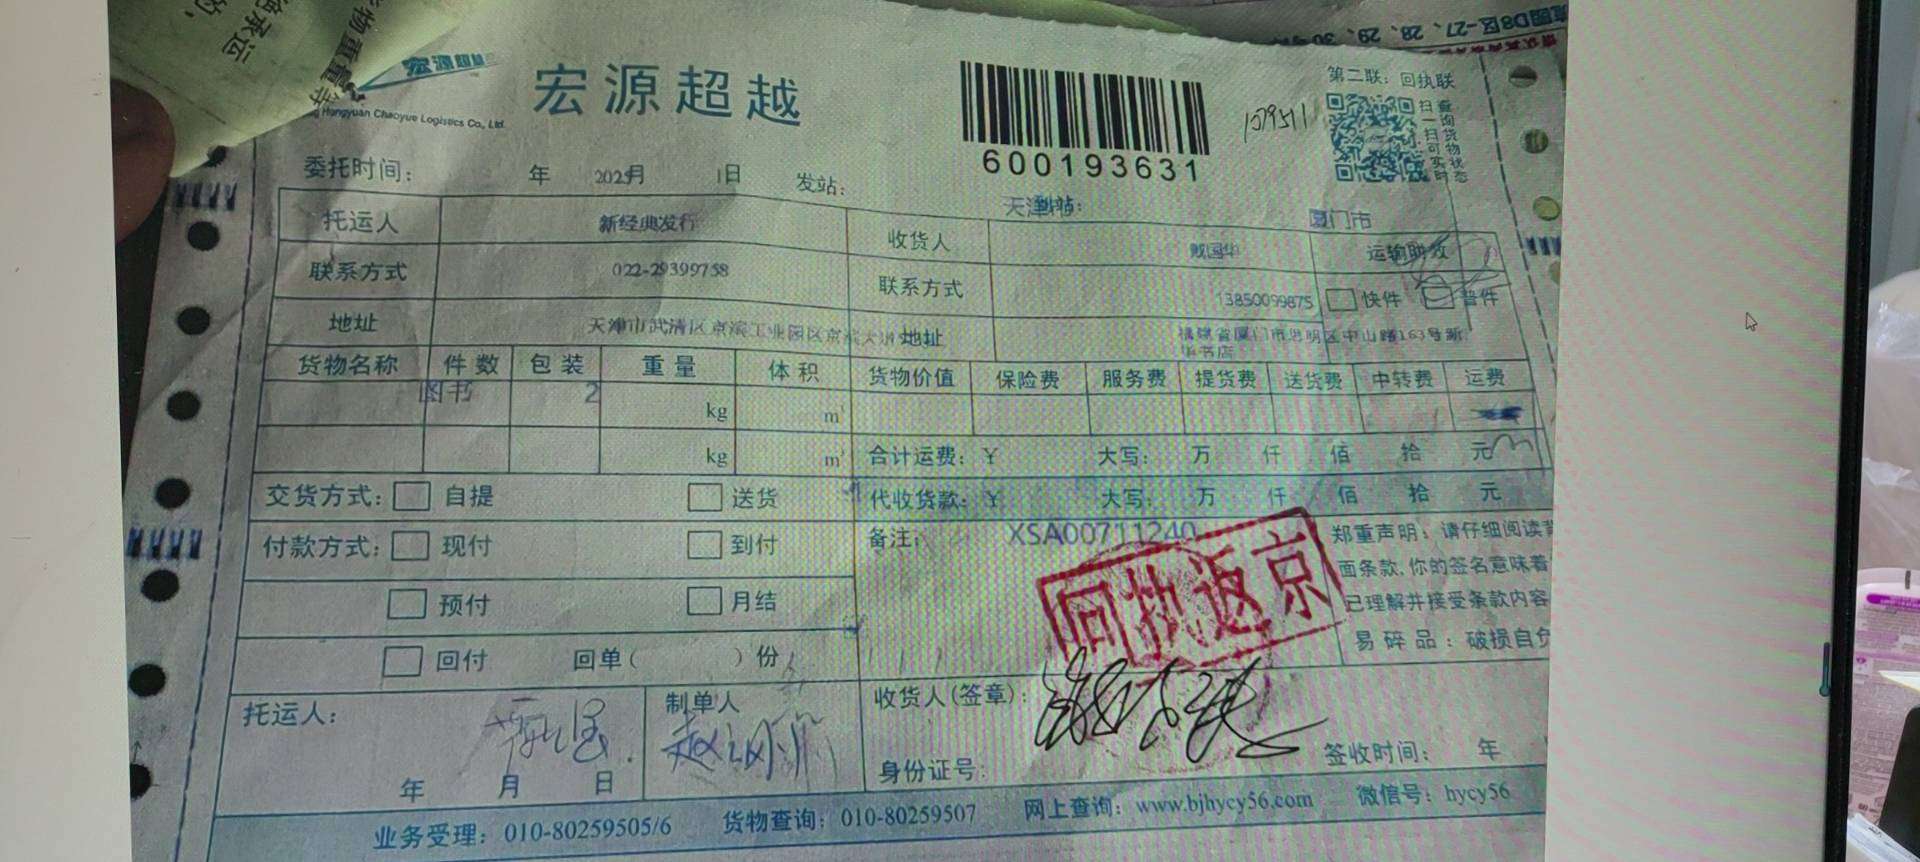 宏源超越
Hongyuan Chaoyue Logistics Co., Ltd.
宏源超越
600193631
1079511
第二联：回执联
扫一扫可实时
查询货物状态
委托时间： 年 2025月 1日 发站： 天津到站： 厦门市
托运人 新经典发行 收货人 运输时效
联系方式 022-29399758 联系方式 13850099875 快件 普件
地址 天津市武清区京滨工业园区京滨大道 地址 福建省厦门市思明区中山路163号新华书店
货物名称 件数 包装 重量 体积 货物价值 保险费 服务费 提货费 送货费 中转费 运费
图书 2 kg m³
kg m³ 合计运费：￥ 大写： 万 仟 佰 拾 元
交货方式： 自提 送货 代收货款：￥ 大写： 万 仟 佰 拾 元
付款方式： 现付 到付 备注： XSA00711240
预付 月结
回付 回单（ ）份
回执返京
郑重声明：请仔细阅读背
面条款,你的签名意味着
已理解并接受条款内容
易碎品：破损自负
托运人： 制单人 收货人(签章)：
年 月 日 身份证号： 签收时间： 年
业务受理：010-80259505/6 货物查询：010-80259507 网上查询：www.bjhycy56.com 微信号：hycy56